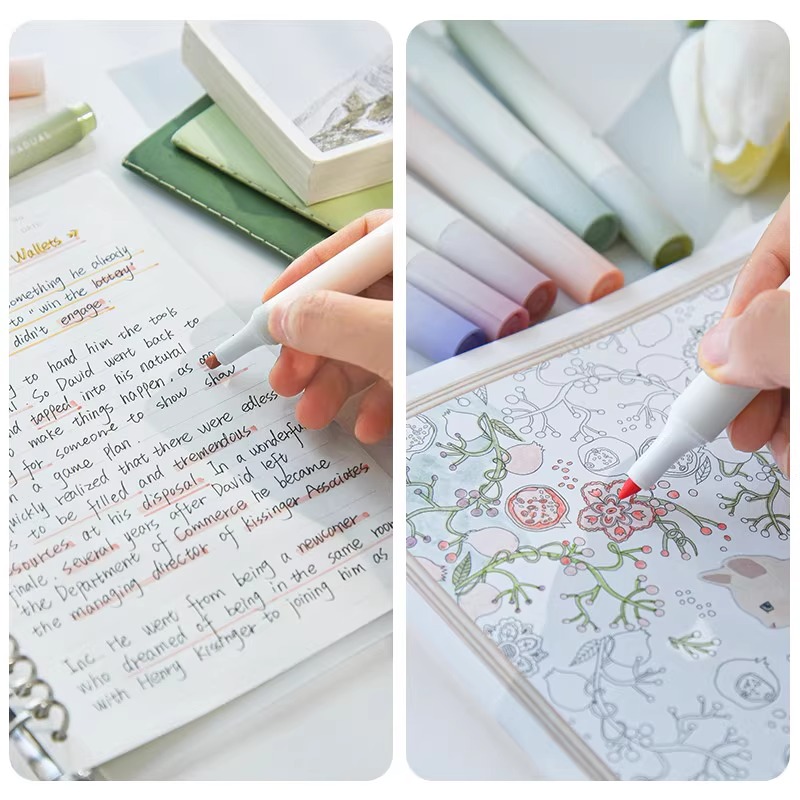 Wallets
something he already
to "win the lottery.
didn't engage.
to hand him the tools
So David went back to
tapped into his natural
make things happen, as opp
for someone to show
show
a game plan.
quickly realized that there were
to be filled and tremendous
sources at his disposal. In a wonderful
inale. several years after David left
the Department of Commerce he became
the managing director of Kissinger Associates
Inc. He went from being a newcomer
who dreamed of being in the same room
with Henry Kissinger to joining him as